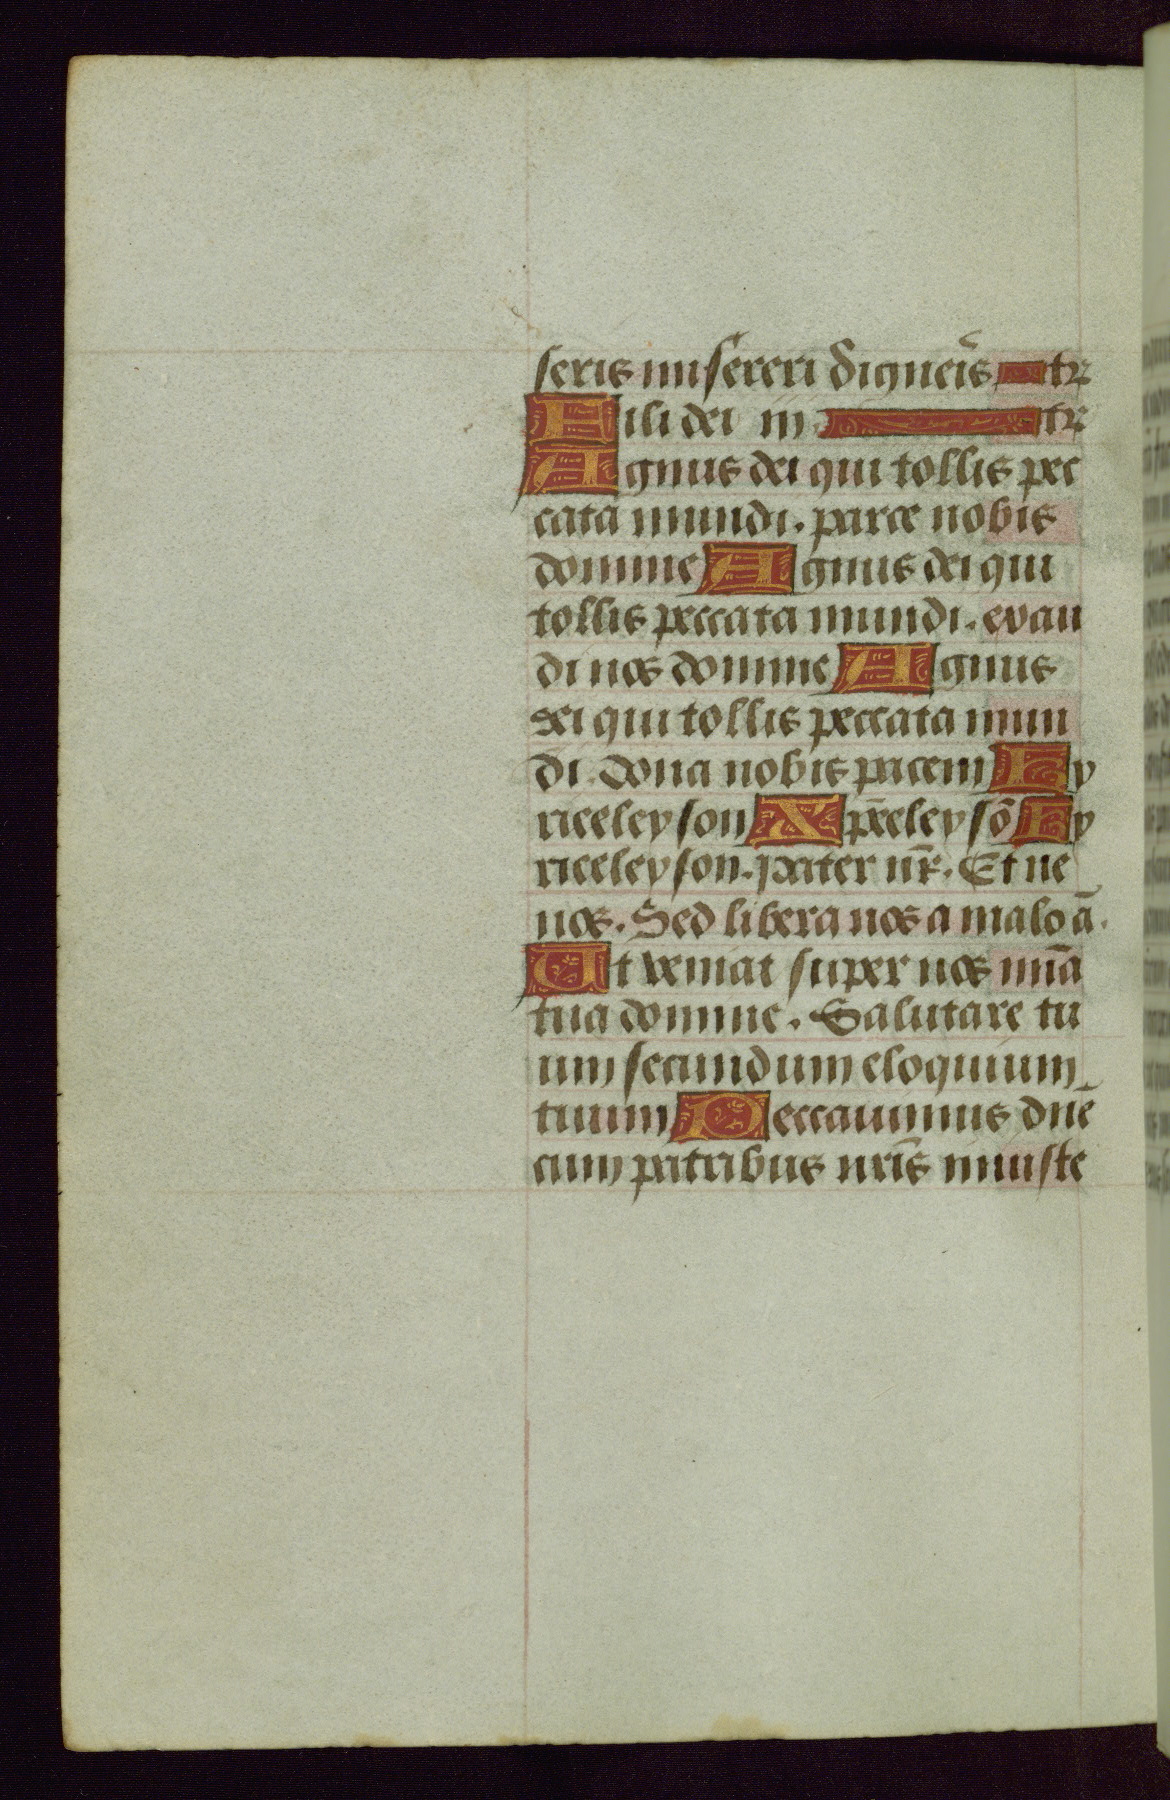 seris misereri digneis tr
Fili dei ui tr
Agnus dei qui tollis pec
cata mundi. parce nobis
domine Agnus dei qui
tollis peccata mundi. exau
di nos domine Agnus
dei qui tollis peccata mun
di. dona nobis pacem Ky
rieeleyson Xp̄eeleysō Ky
rieeleyson. pater nr̄. Et ne
nos. Sed libera nos a malo ā.
Ut veniat super nos mīa
tua domine. Salutare tu
um secundum eloquium
tuum Peccauimus dn̄e
cum patribus nr̄is iniuste